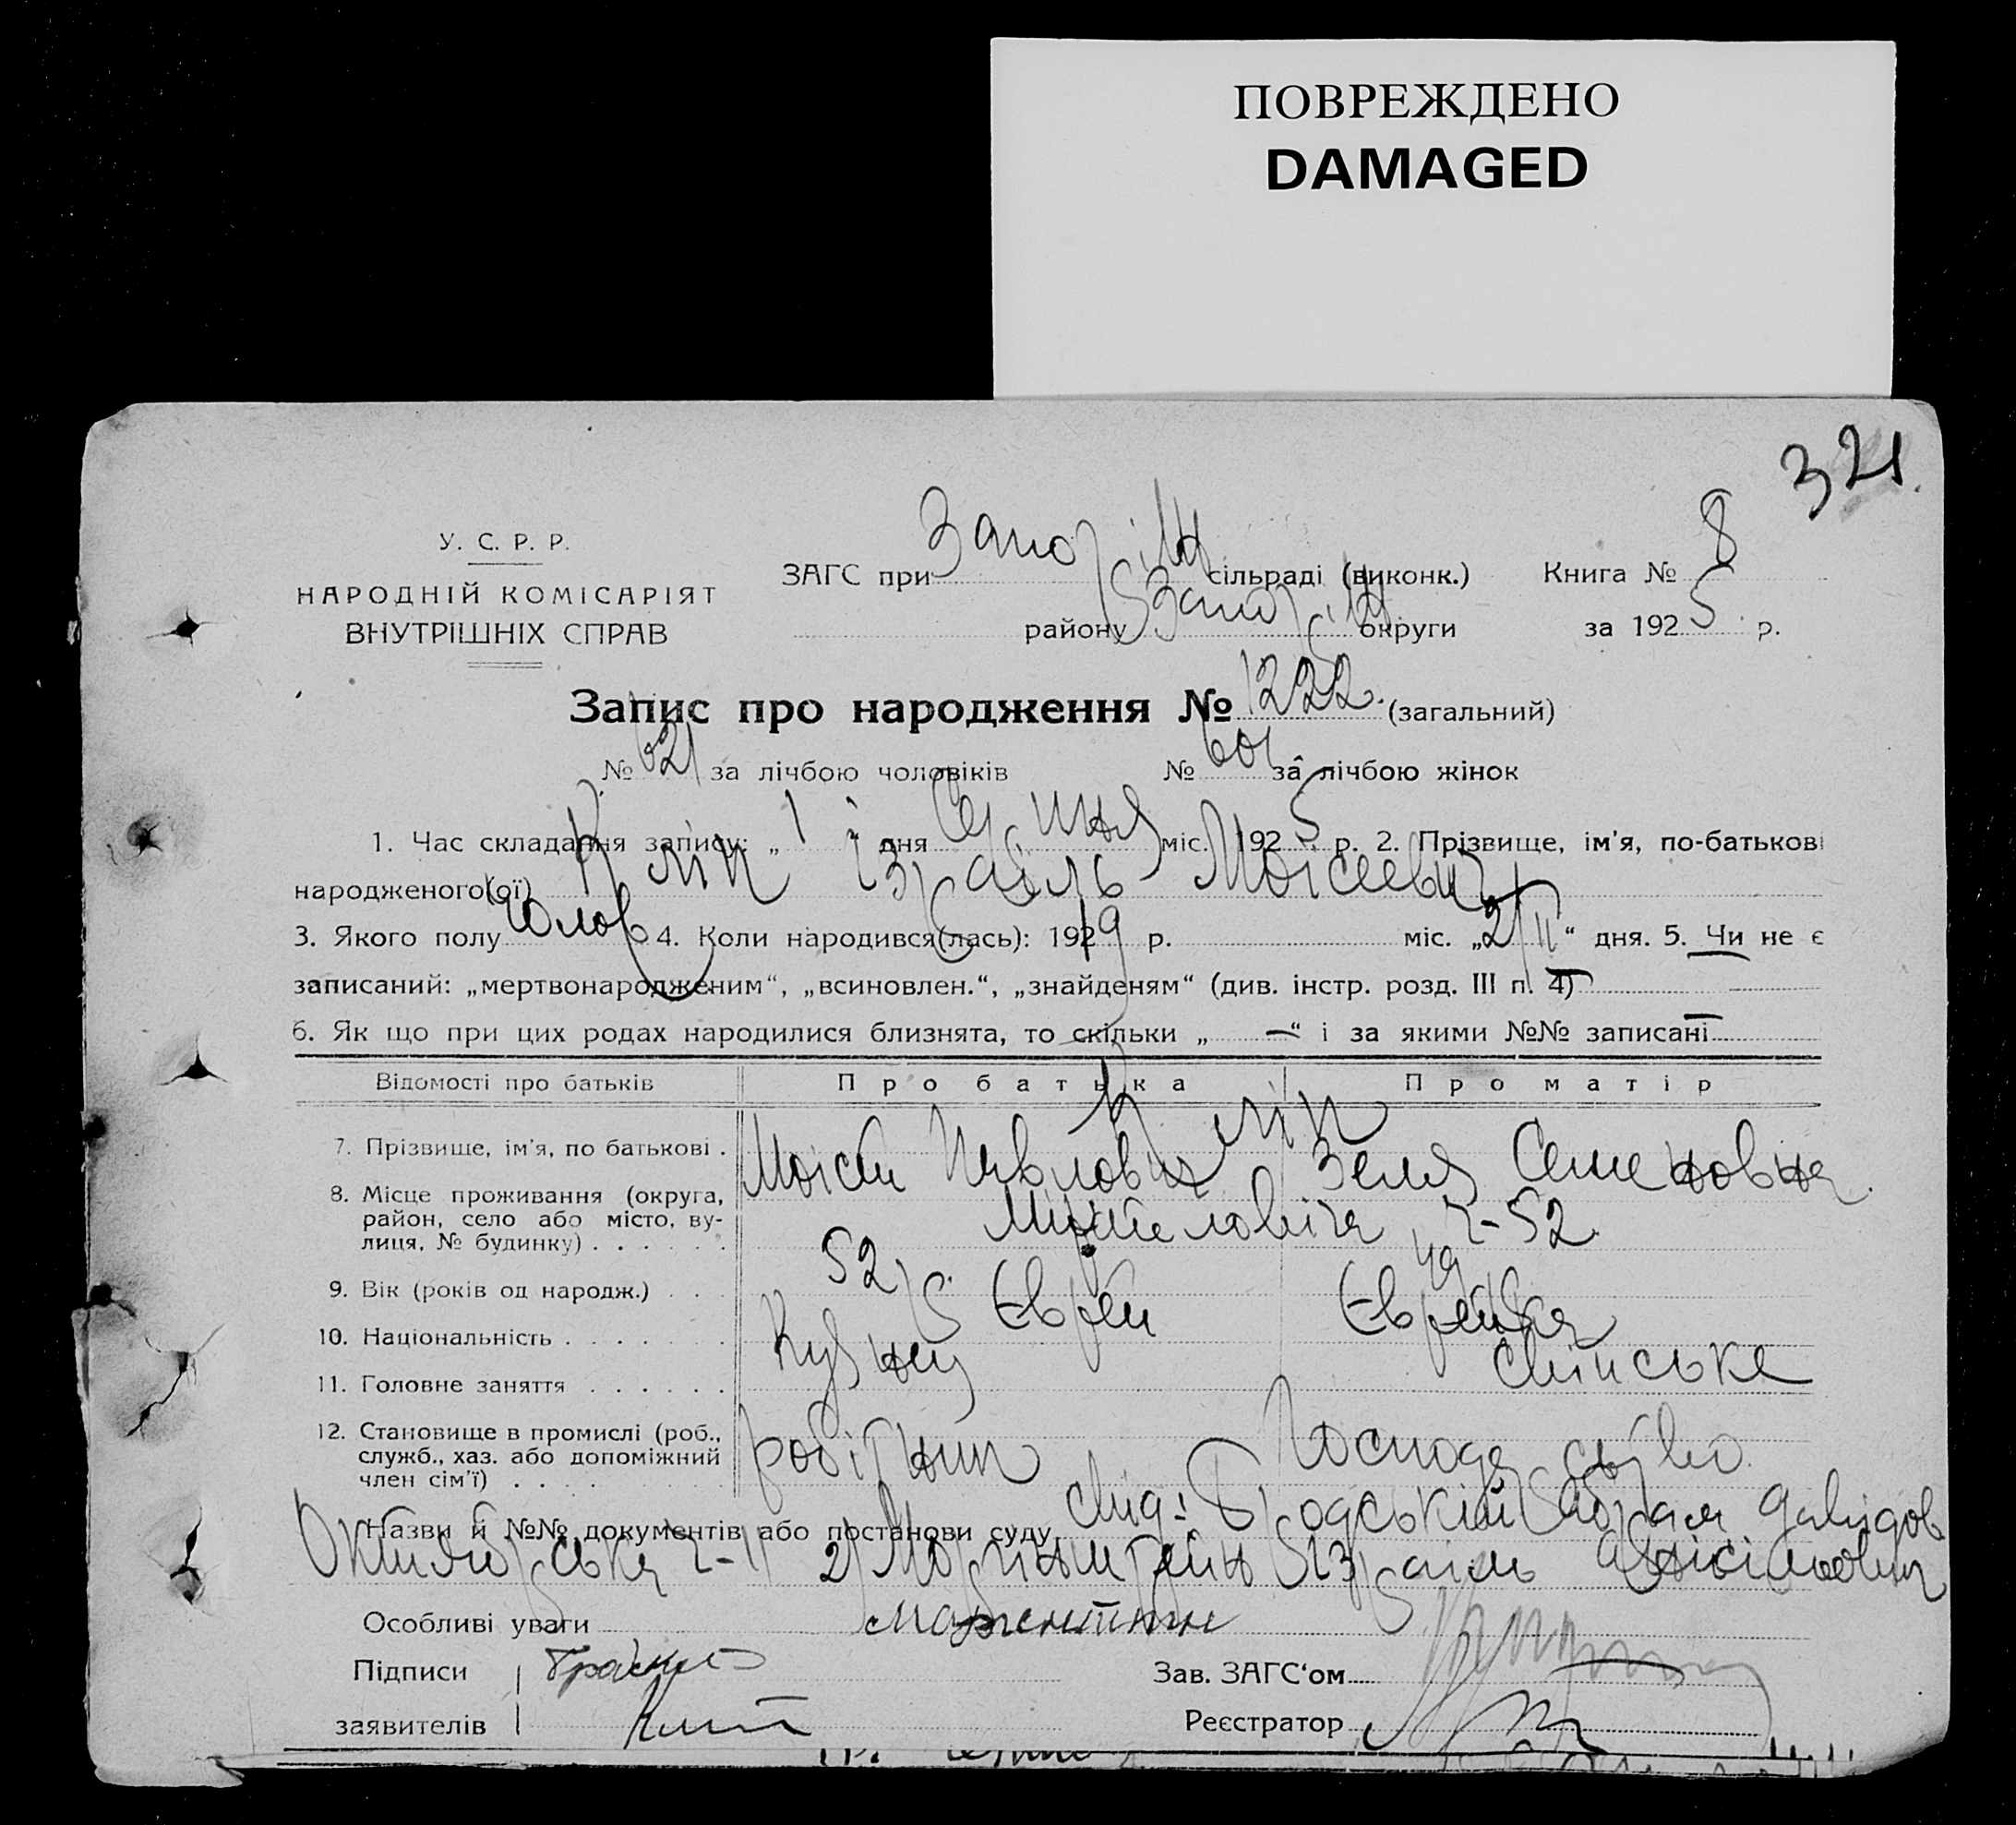 ПОВРЕЖДЕНО
DAMAGED
321
У. С. Р. Р.
НАРОДНІЙ КОМІСАРІЯТ
ВНУТРІШНІХ СПРАВ
ЗАГС при Запоріж сільраді (виконк.) Книга № 8
району Запоріж округи за 1925 р.
Запис про народження № 1222. (загальний)
№ 621 за лічбою чоловіків № 601 за лічбою жінок
1. Час складання запису: „ 1 дня Серпня міс. 1925 р. 2. Прізвище, ім'я, по-батькові
народженого(ої) Ізраїль Моісеевич
3. Якого полу Чолов 4. Коли народився(лась): 192 р. міс. „2/II“ дня. 5. Чи не є
записаний: „мертвонародженим“, „всиновлен.“, „знайденям“ (див. інстр. розд. III п. 4)
6. Як що при цих родах народилися близнята, то скільки „ — “ і за якими №№ записані
Відомості про батьків Про батька Про матір
7. Прізвище, ім'я, по батькові . Моісей Павлович Зеля Семеновна
8. Місце проживання (округа,
район, село або місто, ву-
лиця, № будинку) . . . . . . ч-52
9. Вік (років од народж.) . . . 52 р. 49
10. Національність . . . . . . . Єврей Єврейка
11. Головне заняття . . . . . . Кузнец сільське
12. Становище в промислі (роб.,
служб., хаз. або допоміжний
член сім'ї) . . . . робітник Господарство
Назви й №№ документів або постанови суду Бродський Абрам Давідов
Октяборська ч- 2) Ізраіль
Особливі уваги
Підписи Зав. ЗАГС‘ом
заявителів Реєстратор